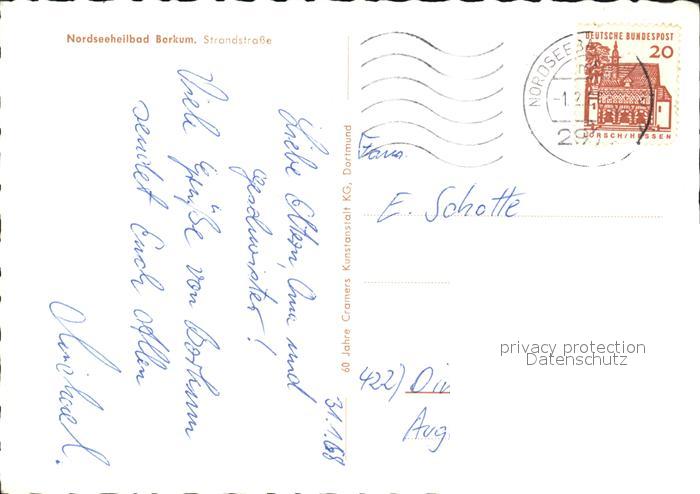 Nordseeheilbad Borkum, Strandstraße
31.1.68
Liebe Eltern, Oma und
Geschwister!
Viele Grüße von Borkum
sendet Euch Allen
Michael.
60 Jahre Cramers Kunstanstalt KG, Dortmund
NORDSEEB
-1.2.
DEUTSCHE BUNDESPOST
20
LORSCH/HESSEN
Fam.
E. Schotte
422) Din
Aug
privacy protection
Datenschutz